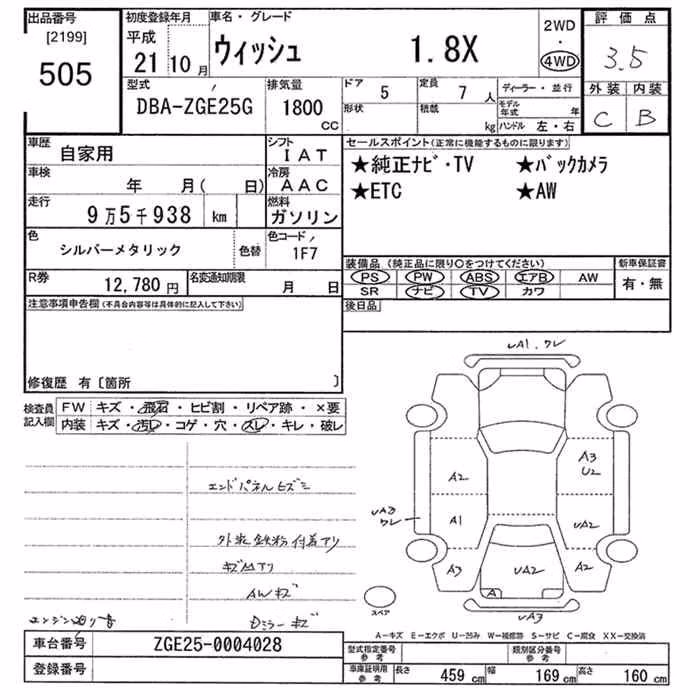 出品番号
[2199]
505
初度登録年月
平成
21 10 月
車名・グレード
ウィッシュ 1.8X
2WD
・
4WD
評価点
3.5
外装 内装
C B
型式
DBA-ZGE25G
排気量
1800
CC
ドア 5
形状
定員 7 人
積載 kg
ディーラー・並行
モデル年式 年
ハンドル 左・右
車歴
自家用
シフト
IAT
車検
年 月( 日)
冷房
AAC
走行
9万5千938 km
燃料
ガソリン
色
シルバーメタリック
色替
色コード
1F7
R券
12,780 円
名変通知期限
月 日
セールスポイント(正常に機能するものに限ります)
★純正ナビ・TV ★バックカメラ
★ETC ★AW
装備品 (純正品に限り○をつけてください)
PS PW ABS エアB AW
SR ナビ TV カワ
新車保証書
有・無
後日品
注意事項申告欄(不具合内容等は具体的に記入して下さい)
修復歴 有〔箇所 〕
検査員記入欄
FW キズ・飛石・ヒビ割・リペア跡・×要
内装 キズ・汚レ・コゲ・穴・スレ・キレ・破レ
エンドパネルヒズミ
外装鉄粉付着アリ
AWキズ
Dミラーキズ
UA1.ワレ
A3
U2
A2
UA3
ワレ
A1
UA2
A3
UA2
A2
A
UA3
スペア
A-キズ E-エクボ U-凹み W-補修跡 S-サビ C-腐食 XX-交換済
車台番号
ZGE25-0004028
登録番号
型式指定番号
参考
類別区分番号
参考
車庫証明用
参考
長さ 459 cm 幅 169 cm 高さ 160 cm